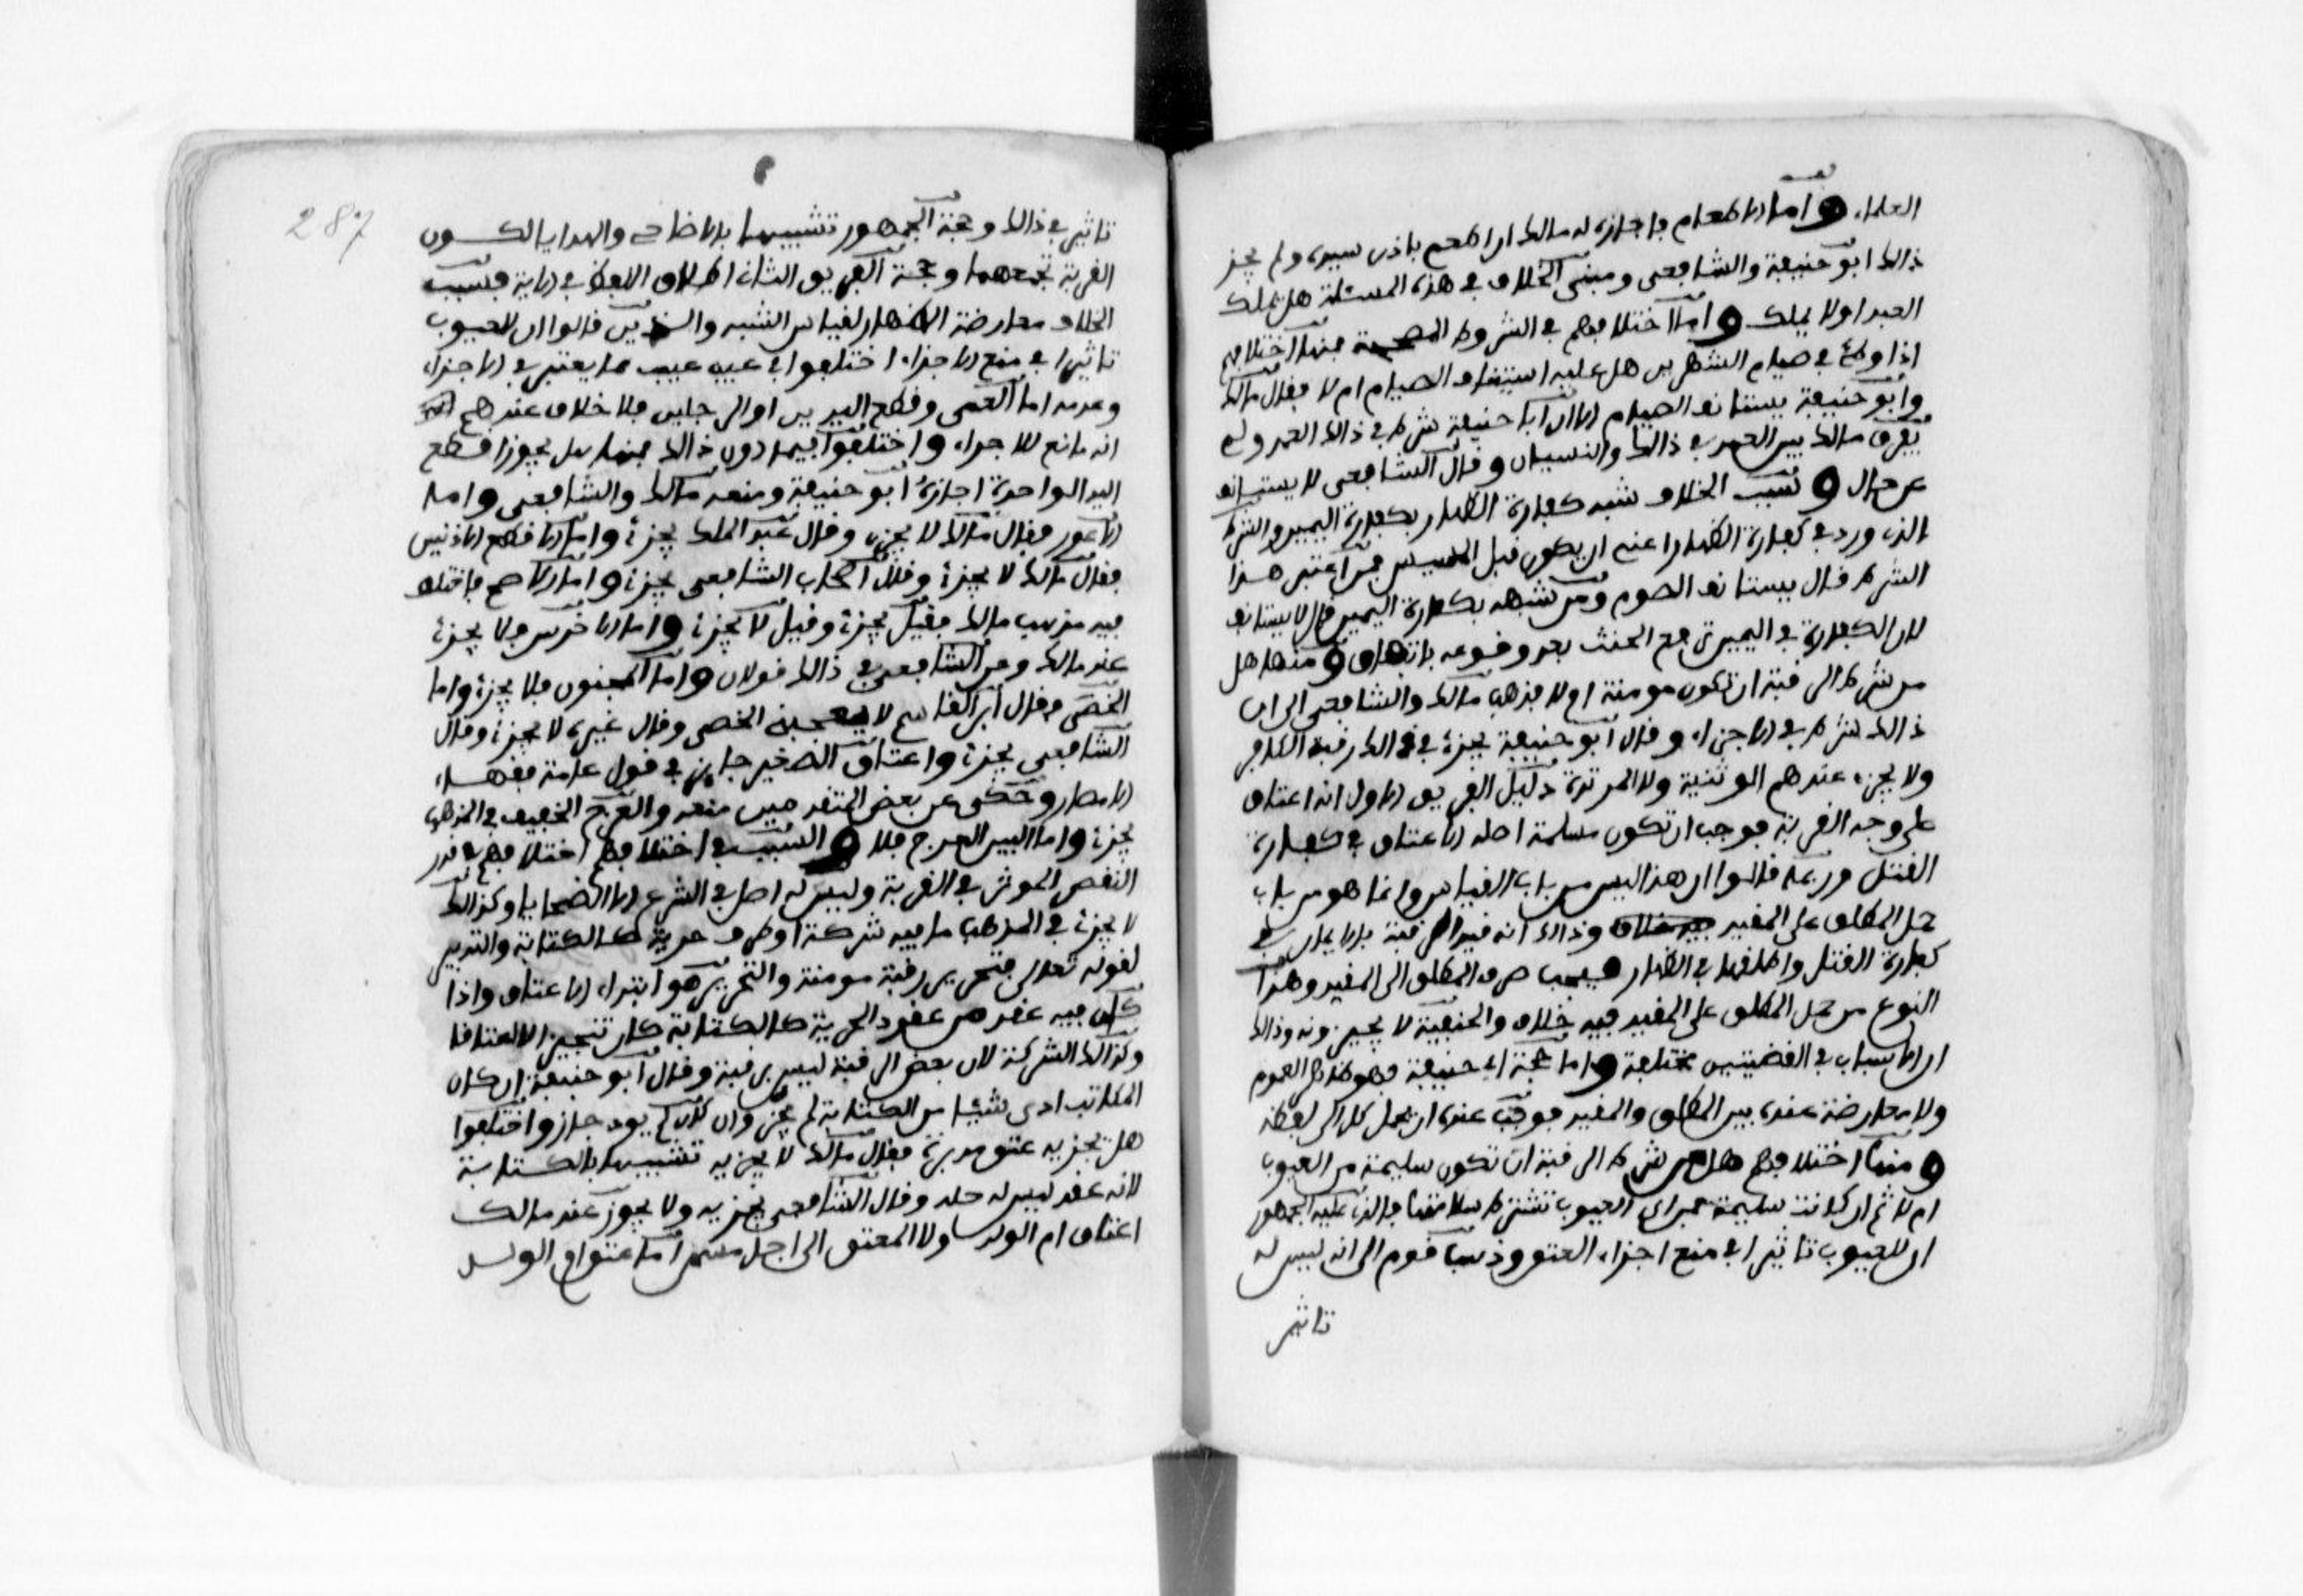 العلماء وأما الاطعام فاجازه له مالك ان اطعم باذن سيده ولم يجز
ذالك ابو حنيفة والشافعي ومبنى الخلاف في هذه المسئلة هل يملك
العبد او لا يملك واما اختلافهم في الشروط المصححة فمنها اختلافهم
اذا وطئ في صيام الشهرين هل عليه استيناف الصيام ام لا فقال مالك
وابو حنيفة يستانف الصيام الا ان ابا حنيفة شرط في ذالك العمد ولم
يفرق مالك بين العمد في ذالك والنسيان وقال الشافعي لا يستانف
على حال وسبب الخلاف شبه كفارة الظهار بكفارة اليمين والشرط
الذي ورد في كفارة الظهار اعني ان يكون قبل المسيس فمن اعتبر هذا
الشرط قال يستانف الصوم ومن شبهه بكفارة اليمين قال لا يستانف
لان الكفارة في اليمين ترفع الحنث بعد وقوعه باتفاق ومنها هل
من شرط الرقبة ان تكون مومنة ام لا فذهب مالك والشافعي الى ان
ذالك شرط في الاجزاء وقال ابو حنيفة يجزئ في ذالك رقبة الكافر
ولا يجزء عندهم الوثنية ولا المرتدة دليل الفريق الاول انه اعتاق
على وجه القربة فوجب ان تكون مسلمة اصله الاعتاق في كفارة
القتل وربما قالوا ان هذا ليس من باب القياس وانما هو من باب
حمل المطلق على المقيد وذالك انه قيد الرقبة بالايمان في
كفارة القتل واطلقها في الظهار فيجب صرف المطلق الى المقيد وهذا
النوع من حمل المطلق على المقيد فيه خلاف والحنفية لا يجيزونه وذالك
ان الاسباب في القضيتين مختلفة واما حجة ابي حنيفة فهو ظاهر العموم
ولا معارضة عنده بين المطلق والمقيد فوجب عنده ان يحمل كل على لفظه
ومنها اختلافهم هل من شرط الرقبة ان تكون سليمة من العيوب
ام لا ثم ان كانت سليمة فمن اي العيوب تشترط سلامتها فالذي عليه الجمهور
ان للعيوب تاثيرا في منع اجزاء العتق وذهب قوم الى انه ليس له
تاثير
287
تاثير في ذالك وحجة الجمهور تشبيهها بالاضاحي والهدايا لكون
القربة تجمعهما وحجة الفريق الثاني اطلاق اللفظ في الاية فسبب
الخلاف معارضة الظاهر لقياس الشبه والذين قالوا ان للعيوب
تاثيرا في منع الاجزاء اختلفوا في عيب عيب مما يعتبر في الاجزاء
وعدمه اما العمى وقطع اليدين او الرجلين فلا خلاف عندهم في
انه مانع للاجزاء واختلفوا فيما دون ذالك فمنها هل يجوز اقطع
اليد الواحدة اجازه ابو حنيفة ومنعه مالك والشافعي واما
الاعور فقال مالك لا يجزء وقال عبد الملك يجزئ واما الاقطع الاذنين
فقال مالك لا يجزئ وقال اصحاب الشافعي يجزئ واما الاصم فاختلف
فيه مذهب مالك فقيل يجزئ وقيل لا يجزئ واما الاخرس فلا يجزئ
عند مالك وعن الشافعي في ذالك قولان واما المجنون فلا يجزئ واما
الخصي فقال ابن القاسم لا يعجبني الخصي وقال غيره لا يجزئ وقال
الشافعي يجزئ واعتاق الصغير جايز في قول عامة فقهاء
الامصار وحكى عن بعض المتقدمين منعه والعرج الخفيف في المذهب
يجزئ واما البين العرج فلا والسبب في اختلافهم اختلافهم في قدر
النقص الموثر في القربة وليس له اصل في الشرع الا الضحايا وكذالك
لا يجزئ في المذهب ما فيه شركة او طرف حرية كالكتابة والتدبير
لقوله تعالى فتحرير رقبة مومنة والتحرير هو ابتداء الاعتاق واذا
كان فيه عقد من عقود الحرية كالكتابة كان تنجيزا لا اعتاقا
وكذالك الشركة لان بعض الرقبة ليس برقبة وقال ابو حنيفة ان كان
المكاتب ادى شيئا من الكتابة لم يجز وان كان لم يود جاز واختلفوا
هل يجزيه عتق مدبره فقال مالك لا يجزيه تشبيها بالكتابة
لانه عقد ليس له حله وقال الشافعي يجزيه ولا يجوز عند مالك
اعتاق ام الولد ولا المعتق الى اجل مسمى اما عتق ام الولد